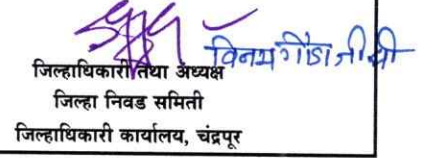 विनय गौडा जी सी
जिल्हाधिकारी तथा अध्यक्ष
जिल्हा निवड समिती
जिल्हाधिकारी कार्यालय, चंद्रपूर